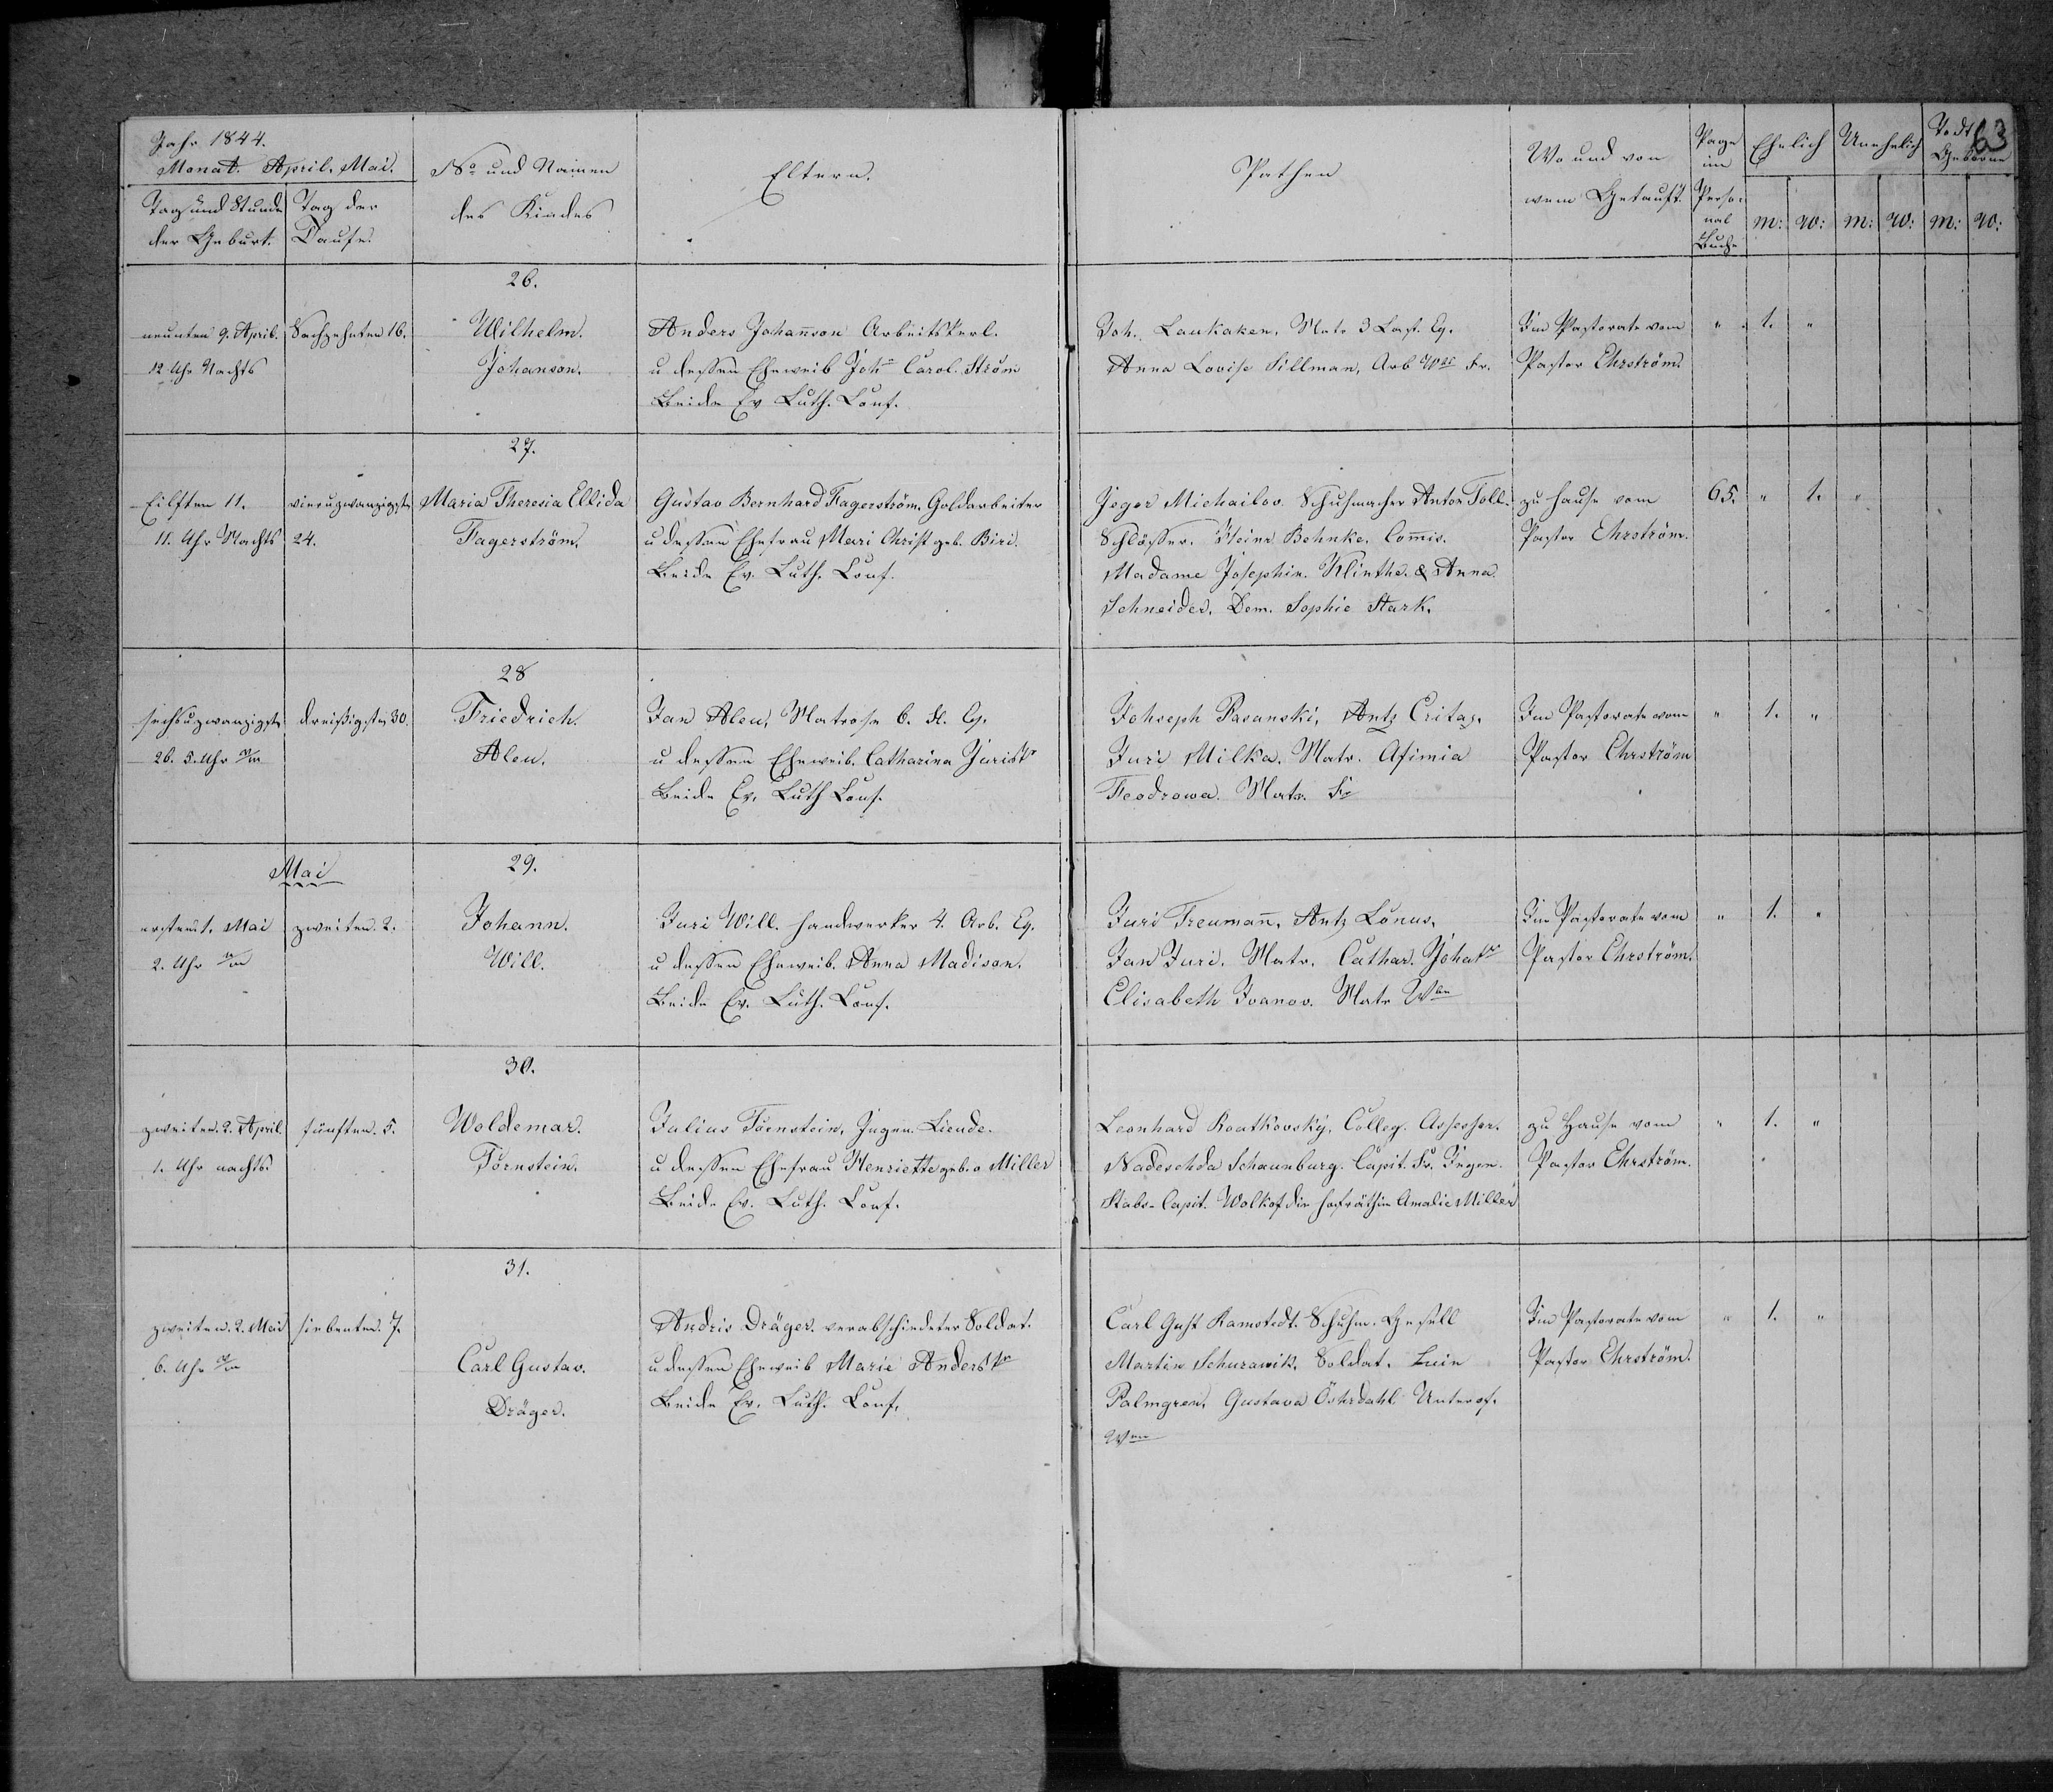 Jahr 1844.
Monat. April. Mai.
Tag und Stunde der Geburt.
Tag der Taufe.
No und Namen des Kindes
Eltern.
Pathen
Wo und von wem Getauft.
Page im Personal Buche
Ehelich
Unehelich
Todt Geborene
63
m: w: m: w: m: w:
26.
neunten 9. April.
12 Uhr Nachts
Sechzehnten 16.
Wilhelm.
Johanson.
Anders Johan̄son Arbeitskerl.
u dessen Eheweib Joh Carol. Ström
Beide Ev Luth. Conf.
Joh. Laukaken, Matr 3 Last. Eq.
Anna Lovise Sillman, Arb Fr.
Im Pastorate vom
Pastor Ehrström.
" 1. "
27.
Eilften 11.
11. Uhr Nachts
vierundzwanzigste
24.
Maria Theresia Ellida
Fagerström.
Gustav Bernhard Fagerström. Goldarbeiter
u dessen Ehefrau Mari Christ geb. Biri.
Beide Ev. Luth. Conf.
Jegor Michailov. Schuhmacher Anton Toll.
Schlösser. Heinr Behnke. Com̄is.
Madame Josephin. Klinthe. & Anna
Schneider. Dem. Sophie Stark.
zu Hause vom
Pastor Ehrström.
65. " 1. "
28
sechsuzwanzigste
26. 5. Uhr
dreißigsten 30.
Friedrich.
Aleu.
Jan Aleu, Matrose 6. Fl. Eq.
u dessen Eheweib. Catharina Jurist
Beide Ev. Luth Conf.
Johseph Pasanski, Antz Critas.
Juri Milka. Matr. Afimia
Feodrowa. Matr. Fr
Im Pastorate vom
Pastor Ehrström
" 1. "
Mai
29.
ersten 1. Mai
2. Uhr
zweiten 2.
Johann.
Will.
Juri Will. Handwerker 4. Arb. Eq.
u dessen Eheweib. Anna Madison.
Beide Ev. Luth. Conf.
Juri Freuman̄, Antz Lonus,
Jan Juri. Matr. Cathar.
Elisabeth Ivanov. Matr
Im Pastorate vom
Pastor Ehrström.
" 1. "
30.
zweiten 2. April.
1. Uhr nachts.
fünften. 5.
Woldemar.
Törnstein.
Julius Törnstein, Ingen. Lieude.
u dessen Ehefrau Henriette geb. a Miller
Beide Ev. Luth. Conf.
Leonhard Koatkovsky, Colleg. Assessor.
Nadeschda Schaunburg. Capit. Fr. Ingen.
Stabs-Capit. Wolkof die Hofräthin Amalie Miller
zu Hause vom
Pastor Ehrström.
" 1. "
31.
zweiten. 2. Mai
6. Uhr
siebenten. 7.
Carl Gustav.
Dräger.
Andris Dräger. verabschiedeter Soldat.
u dessen Eheweib Marie
Beide Ev. Luth. Conf.
Carl Gust Ramstedt. Schuhm. Gesell
Martin Schurawik. Soldat.
Palmgren, Gustava Östrdahl Unterof.
Im Pastorate vom
Pastor Ehrström.
" 1. "